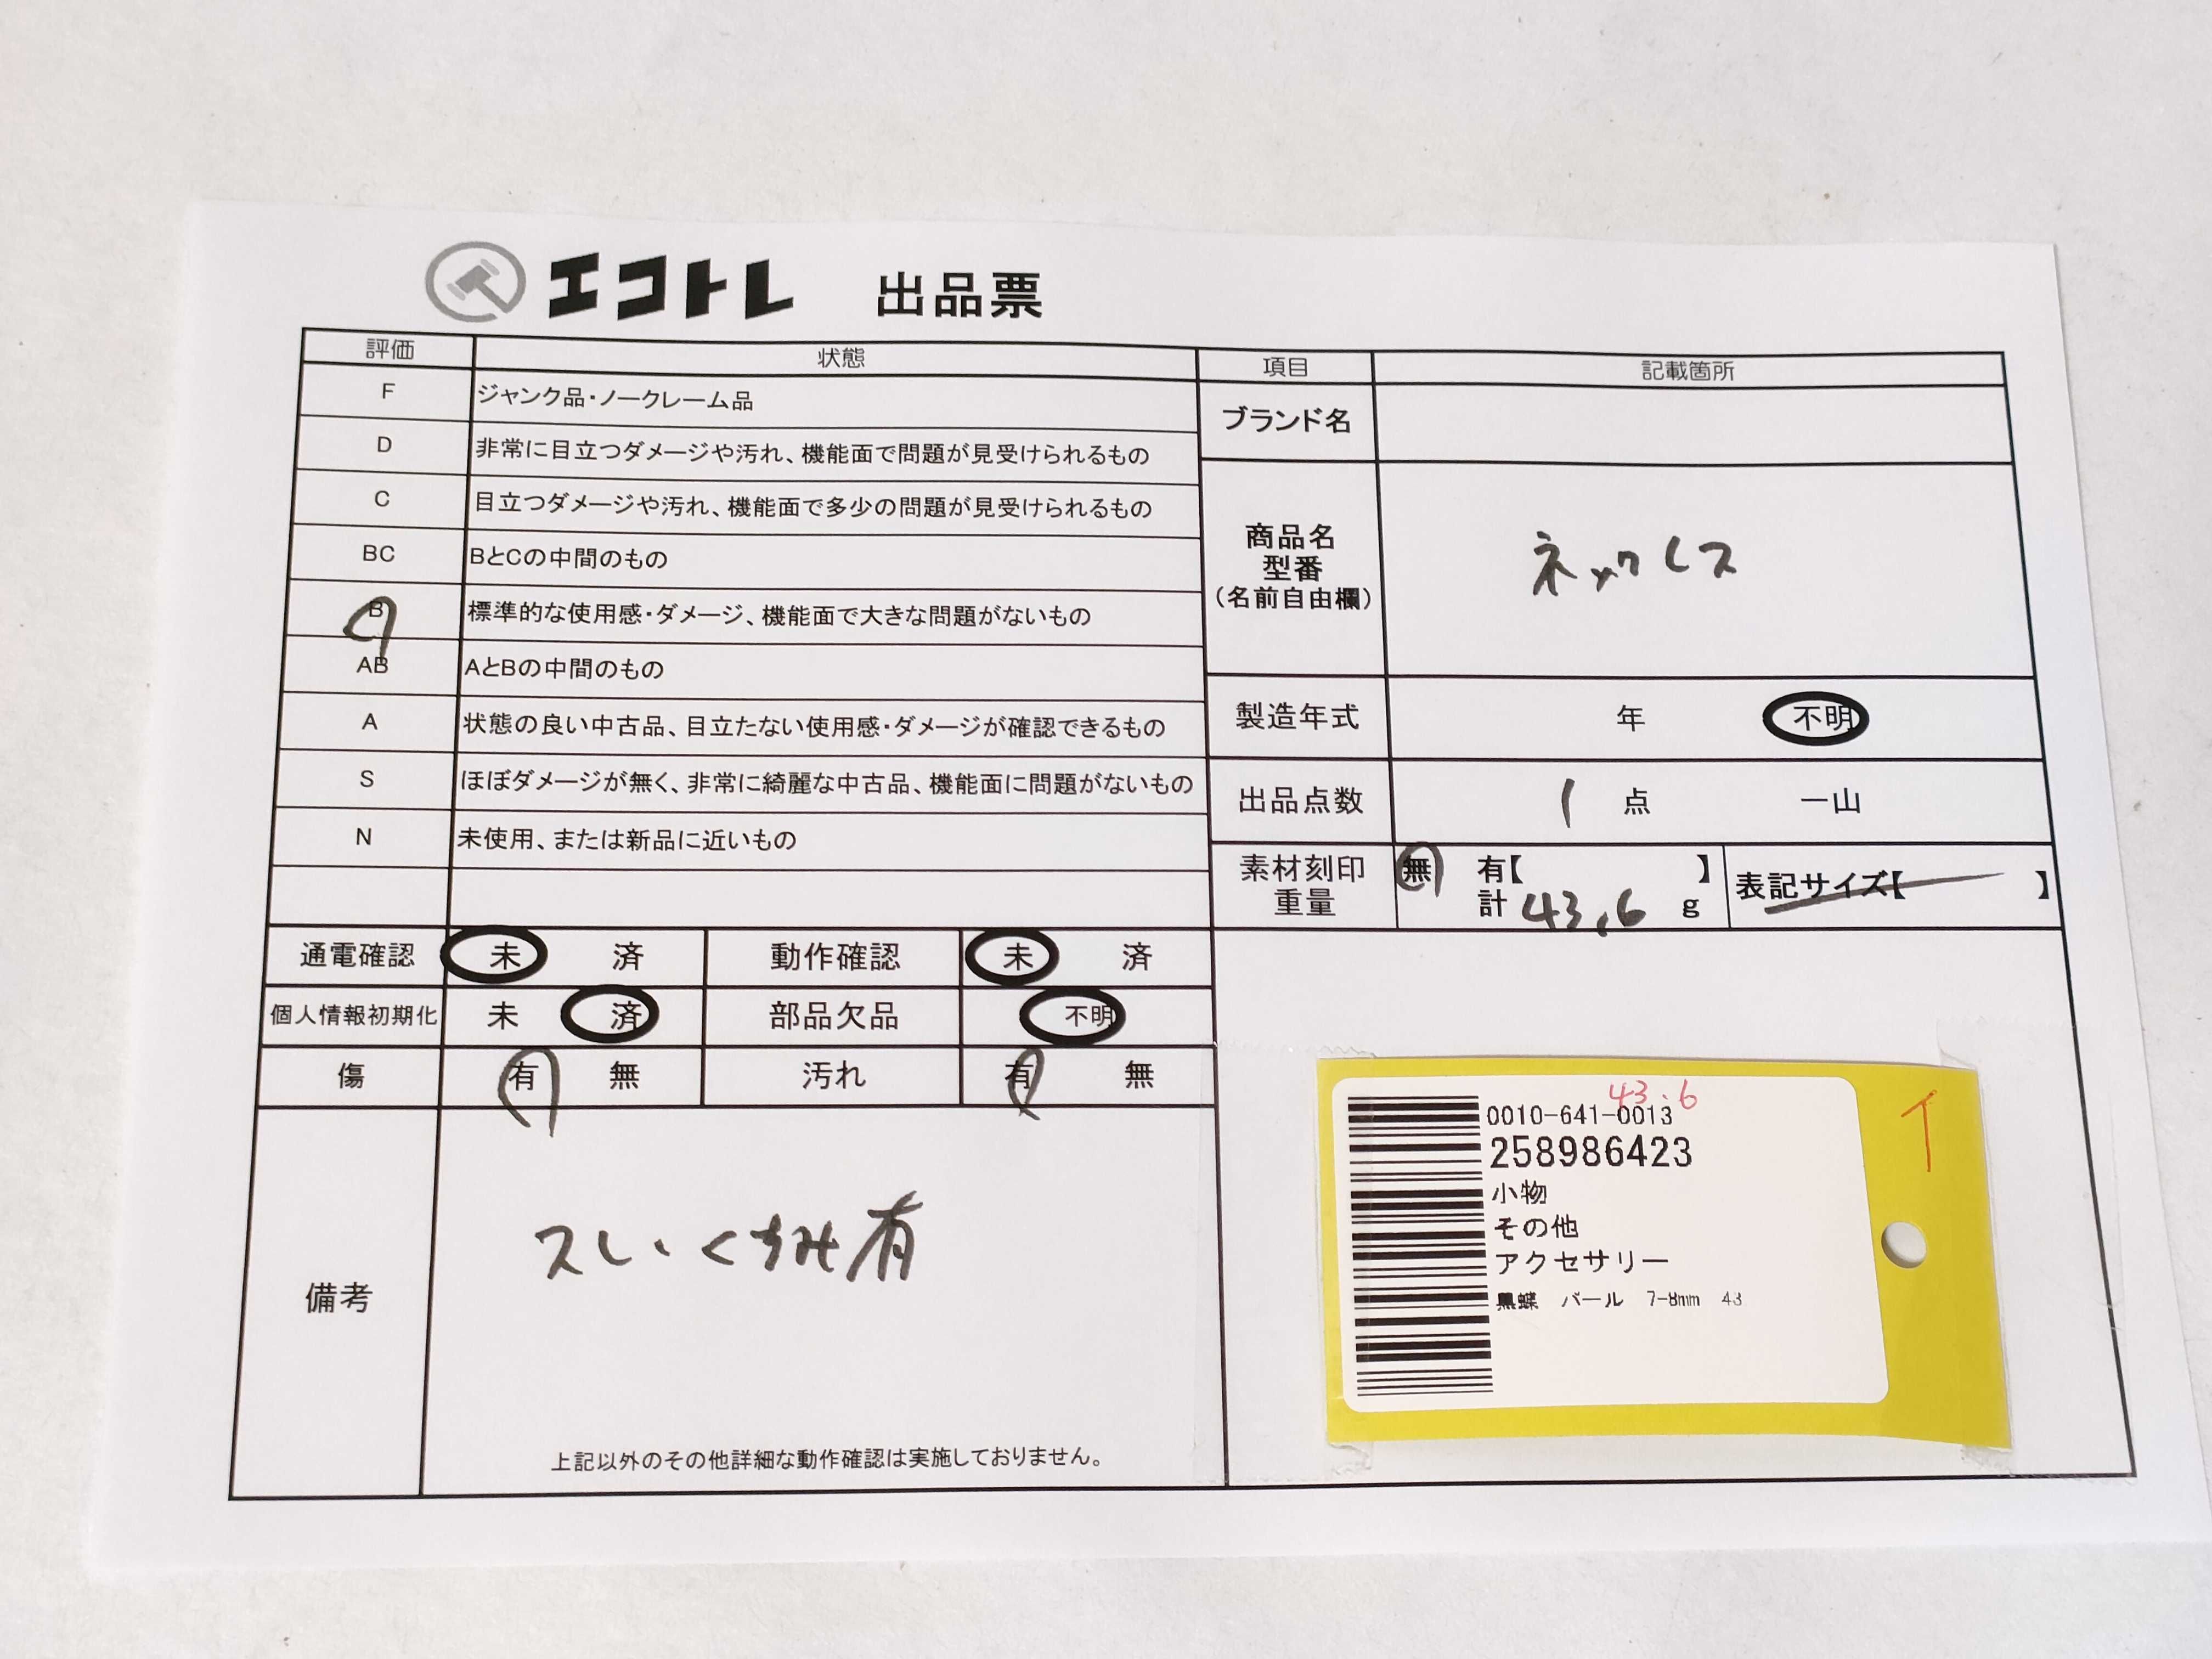 エコトレ 出品票
評価 状態
F ジャンク品・ノークレーム品
D 非常に目立つダメージや汚れ、機能面で問題が見受けられるもの
C 目立つダメージや汚れ、機能面で多少の問題が見受けられるもの
BC BとCの中間のもの
B 標準的な使用感・ダメージ、機能面で大きな問題がないもの
AB AとBの中間のもの
A 状態の良い中古品、目立たない使用感・ダメージが確認できるもの
S ほぼダメージが無く、非常に綺麗な中古品、機能面に問題がないもの
N 未使用、または新品に近いもの
通電確認 未 済 動作確認 未 済
個人情報初期化 未 済 部品欠品 不明
傷 有 無 汚れ 有 無
備考
スレ・くすみ有
上記以外のその他詳細な動作確認は実施しておりません。
項目 記載箇所
ブランド名
商品名
型番
(名前自由欄)
ネックレス
製造年式 年 不明
出品点数 1 点 一山
素材刻印 無 有【 】
重量 計 43.6 g
表記サイズ【 】
43.6
0010-641-0013
258986423
小物
その他
アクセサリー
黒蝶 パール 7-8mm 43